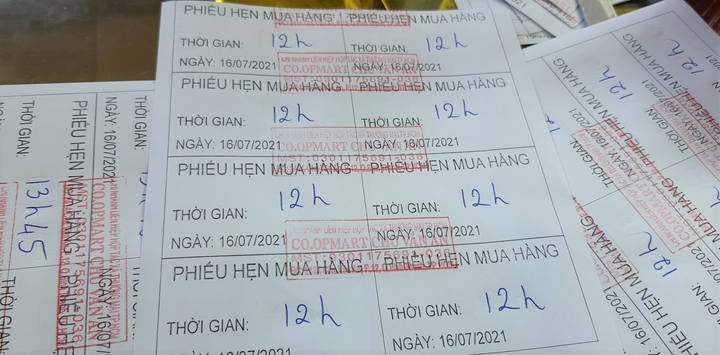 PHIẾU HẸN MUA HÀNG PHIẾU HẸN MUA HÀNG
THỜI GIAN: 12h THỜI GIAN: 12h
NGÀY: 16/07/2021 NGÀY: 16/07/2021
CO.OPMART CHU VĂN AN
PHIẾU HẸN MUA HÀNG PHIẾU HẸN MUA HÀNG
THỜI GIAN: 12h THỜI GIAN: 12h
NGÀY: 16/07/2021 NGÀY: 16/07/2021
CO.OPMART CHU VĂN AN
MST:0301175691-036
PHIẾU HẸN MUA HÀNG PHIẾU HẸN MUA HÀNG
THỜI GIAN: 12h THỜI GIAN: 12h
NGÀY: 16/07/2021 NGÀY: 16/07/2021
CO.OPMART CHU VĂN AN
MST:0301175691-036
PHIẾU HẸN MUA HÀNG PHIẾU HẸN MUA HÀNG
THỜI GIAN: 12h THỜI GIAN: 12h
NGÀY: 16/07/2021
THỜI GIAN:
NGÀY: 16/07/202
PHIẾU HẸN MUA HÀNG
THỜI GIAN: 13h45
NGÀY: 16/07/2021
THỜI GIAN:
CO.OPMART CHU VĂN AN
MST:0301175691-036
PHIẾU HẸN MUA HÀNG
12h
THỜI GIAN: 12h
PHIẾU HẸN MUA HÀNG
12h
16/07/2021
PHIẾU HẸN MUA HÀNG